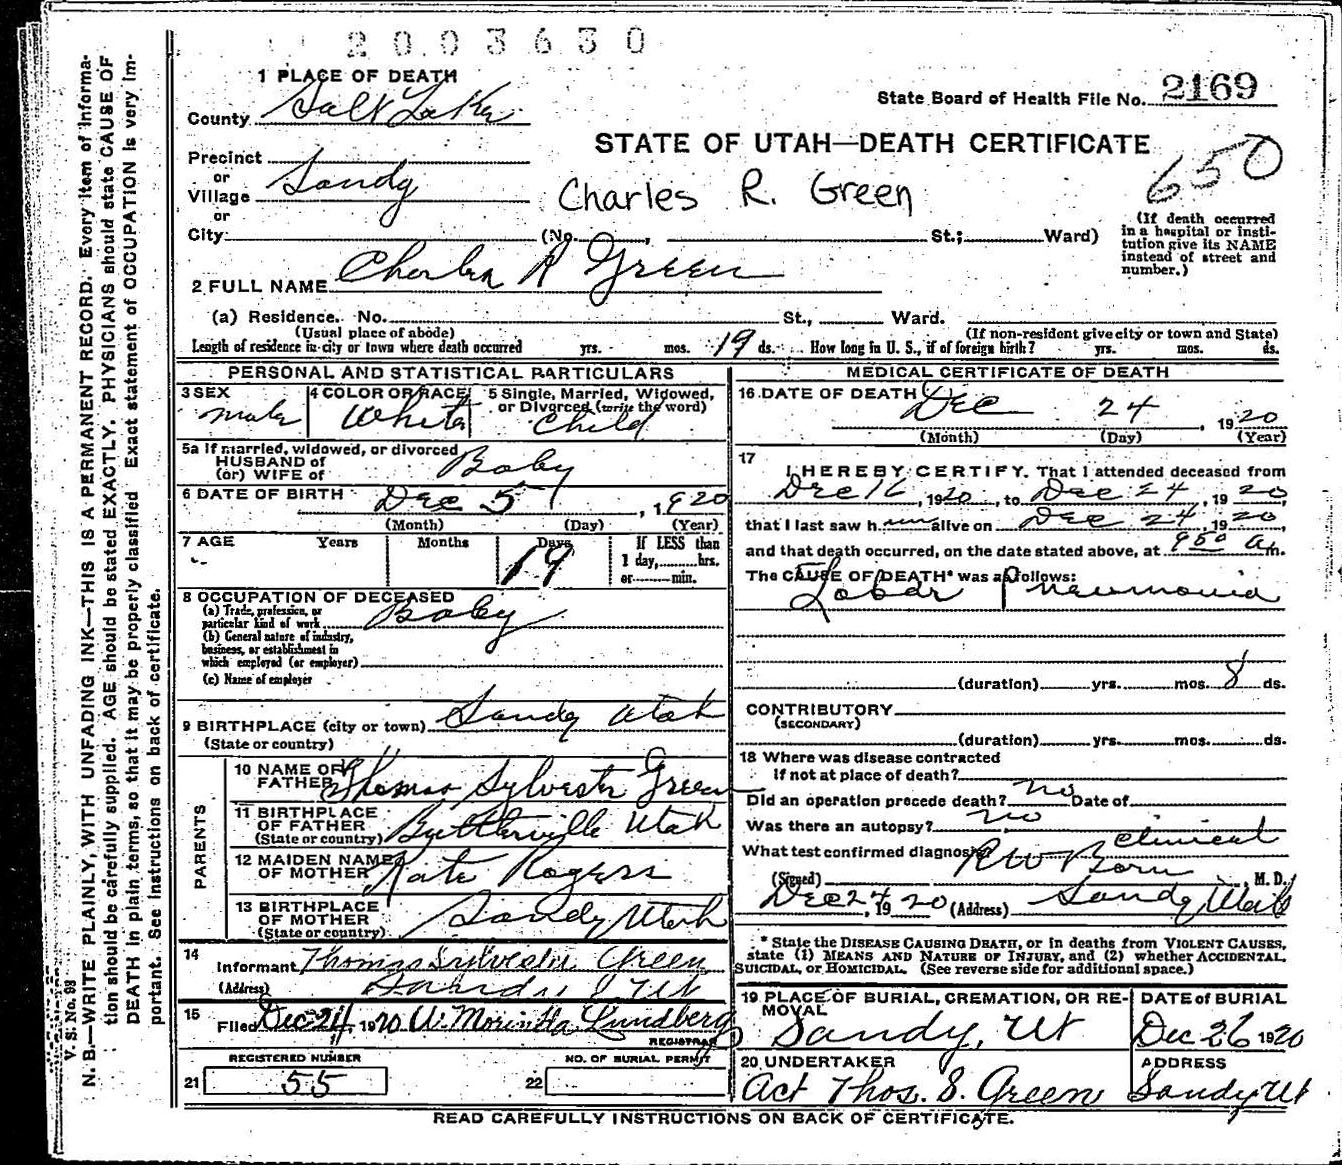 2003630
1 PLACE OF DEATH
County Salt Lake
State Board of Health File No. 2169
STATE OF UTAH—DEATH CERTIFICATE
650
Precinct
or
Village Sandy
or
Charles R. Green
City (No. , St.; Ward)
(If death occurred in a hospital or institution give its NAME instead of street and number.)
2 FULL NAME Charles R Green
(a) Residence. No. St., Ward.
(Usual place of abode) (If non-resident give city or town and State)
Length of residence in city or town where death occurred yrs. mos. 19 ds. How long in U. S., if of foreign birth? yrs. mos. ds.
PERSONAL AND STATISTICAL PARTICULARS
3 SEX male
4 COLOR OR RACE White
5 Single, Married, Widowed, or Divorced (write the word) Child
5a If married, widowed, or divorced
HUSBAND of
(or) WIFE of Baby
6 DATE OF BIRTH Dec 5, 1920
(Month) (Day) (Year)
7 AGE Years Months Days 19 If LESS than 1 day, hrs. or min.
8 OCCUPATION OF DECEASED
(a) Trade, profession, or particular kind of work Baby
(b) General nature of industry, business, or establishment in which employed (or employer)
(c) Name of employer
9 BIRTHPLACE (city or town) Sandy Utah
(State or country)
PARENTS
10 NAME OF FATHER Thomas Sylvester Green
11 BIRTHPLACE OF FATHER (State or country) Butlerville Utah
12 MAIDEN NAME OF MOTHER Kate Rogers
13 BIRTHPLACE OF MOTHER (State or country) Sandy Utah
14 Informant Thomas Sylvester Green
(Address) Sandy Ut
15 Filed Dec 24, 1920 Lundberg
REGISTRAR
REGISTERED NUMBER
21 55
NO. OF BURIAL PERMIT
22
MEDICAL CERTIFICATE OF DEATH
16 DATE OF DEATH Dec 24, 1920
(Month) (Day) (Year)
17
I HEREBY CERTIFY, That I attended deceased from
Dec 16, 1920, to Dec 24, 1920
that I last saw him alive on Dec 24, 1920
and that death occurred, on the date stated above, at 950 a m.
The CAUSE OF DEATH* was as follows:
Lobar Pneumonia
(duration) yrs. mos. 8 ds.
CONTRIBUTORY
(SECONDARY)
(duration) yrs. mos. ds.
18 Where was disease contracted
If not at place of death?
Did an operation precede death? no Date of
Was there an autopsy? no
What test confirmed diagnosis? Clinical
(Signed) R W Born, M. D.
Dec 24, 1920 (Address) Sandy Utah
* State the DISEASE CAUSING DEATH, or in deaths from VIOLENT CAUSES, state (1) MEANS AND NATURE OF INJURY, and (2) whether ACCIDENTAL, SUICIDAL, OR HOMICIDAL. (See reverse side for additional space.)
19 PLACE OF BURIAL, CREMATION, OR REMOVAL Sandy, Ut
DATE OF BURIAL Dec 26 1920
20 UNDERTAKER Act Thos. S. Green
ADDRESS Sandy Ut
READ CAREFULLY INSTRUCTIONS ON BACK OF CERTIFICATE.
V. S. No. 98
N. B.—WRITE PLAINLY, WITH UNFADING INK—THIS IS A PERMANENT RECORD. Every item of informa-
tion should be carefully supplied. AGE should be stated EXACTLY. PHYSICIANS should state CAUSE OF
DEATH in plain terms, so that it may be properly classified. Exact statement of OCCUPATION is very im-
portant. See instructions on back of certificate.